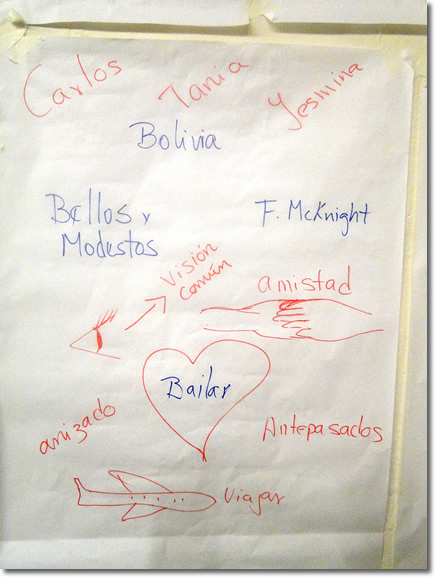 Carlos Tania Yesmina
Bolivia
Bellos y
Modestos
F. McKnight
Visión
común
amistad
Bailar
anizado
Antepasados
Viajar